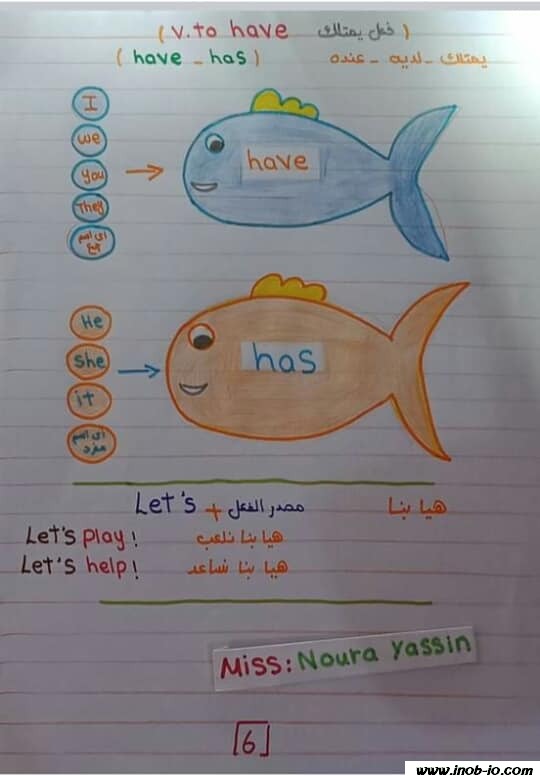 ( v. to have فعل يمتلك )
( have - has ) يمتلك - لديه - عنده
I
we
you
They
اى اسم جمع
have
He
she
it
اى اسم مفرد
has
Let's + مصدر الفعل هيا بنا
Let's play! هيا بنا نلعب
Let's help! هيا بنا نساعد
Miss: Noura Yassin
6
www.inob-io.com